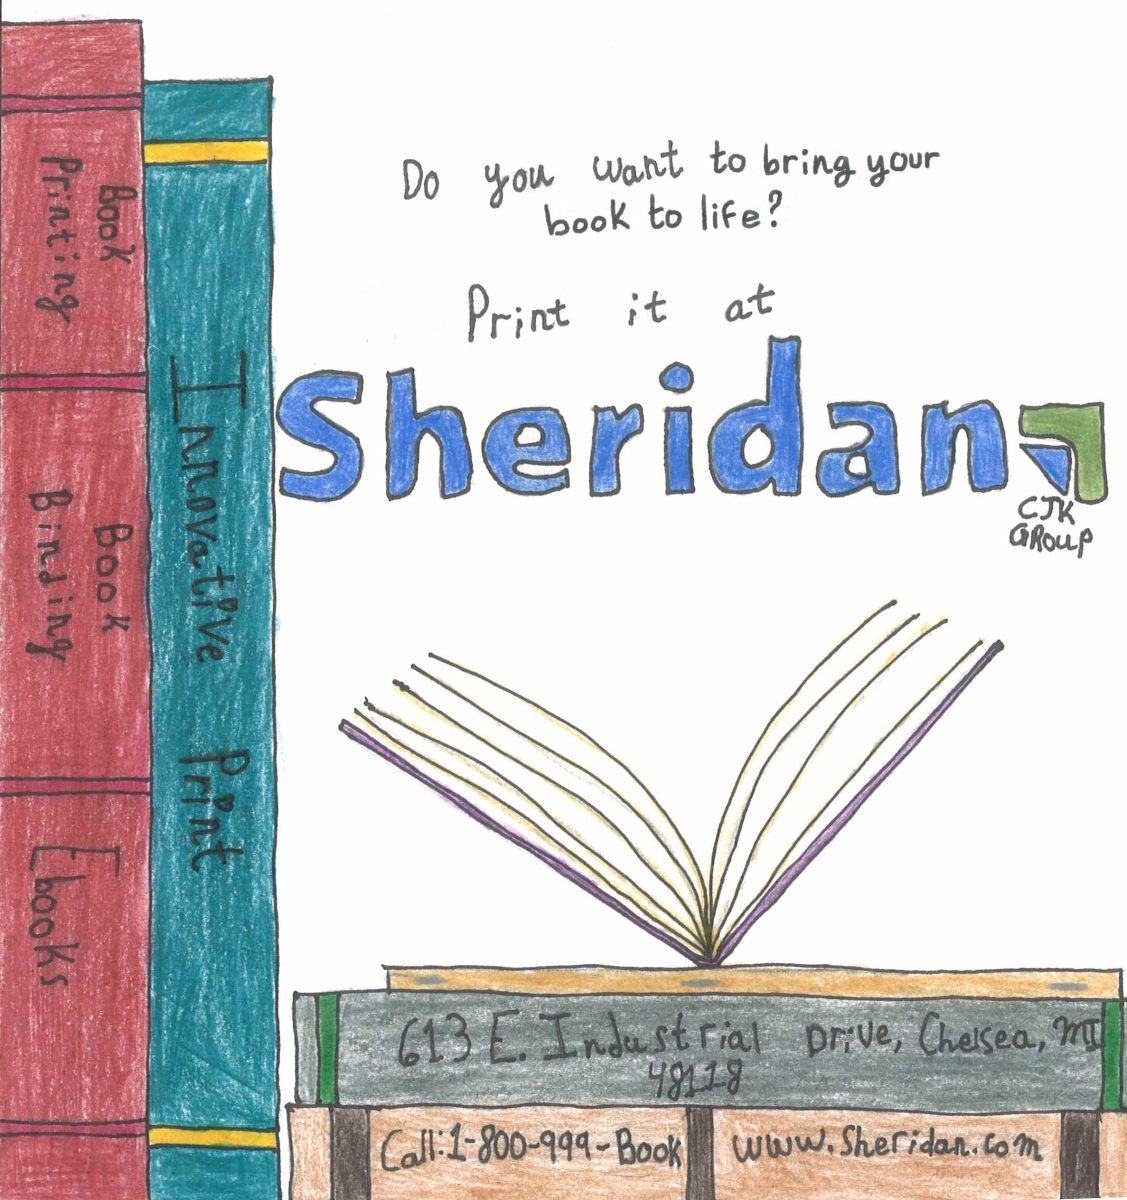 Book
Printing
Book
Binding
Ebooks
Innovative Print
Do you want to bring your
book to life?
Print it at
Sheridan
CJK
GROUP
613 E. Industrial Drive, Chelsea, MI
48118
Call:1-800-999-Book
www.Sheridan.com